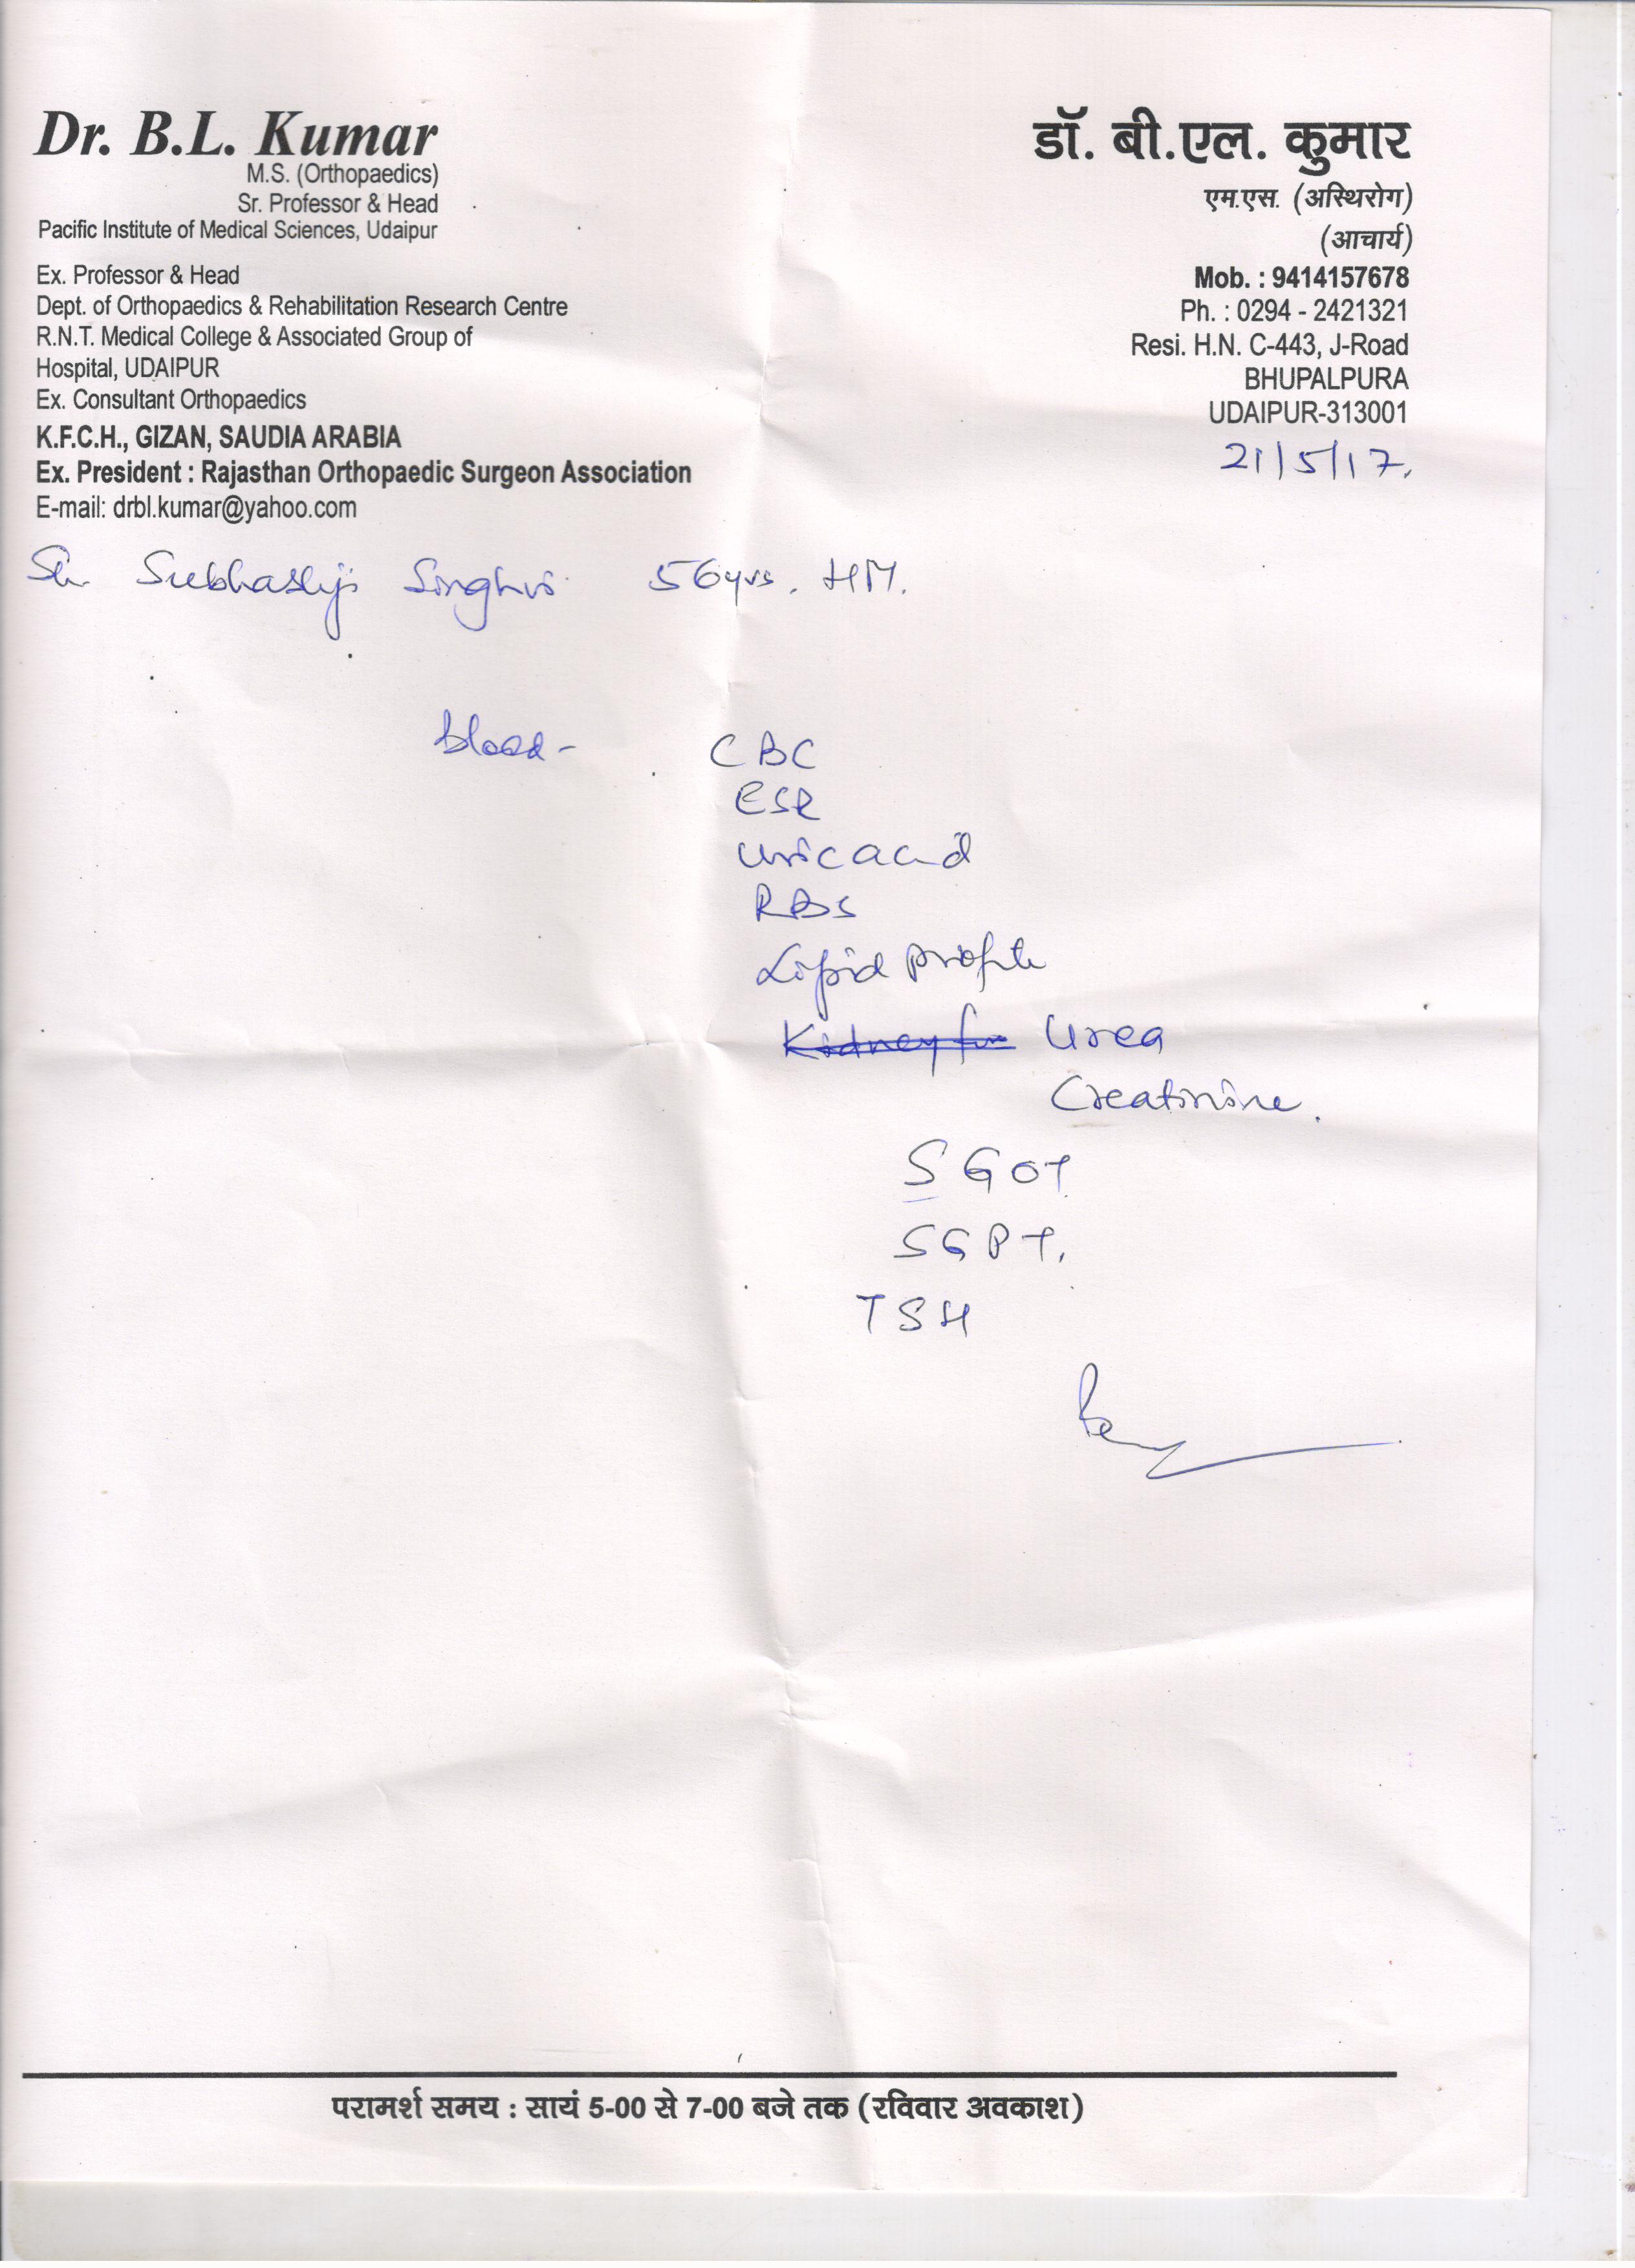 Dr. B.L. Kumar
M.S. (Orthopaedics)
Sr. Professor & Head
Pacific Institute of Medical Sciences, Udaipur
Ex. Professor & Head
Dept. of Orthopaedics & Rehabilitation Research Centre
R.N.T. Medical College & Associated Group of
Hospital, UDAIPUR
Ex. Consultant Orthopaedics
K.F.C.H., GIZAN, SAUDIA ARABIA
Ex. President : Rajasthan Orthopaedic Surgeon Association
E-mail: drbl.kumar@yahoo.com
डॉ. बी.एल. कुमार
एम.एस. (अस्थिरोग)
(आचार्य)
Mob. : 9414157678
Ph. : 0294 - 2421321
Resi. H.N. C-443, J-Road
BHUPALPURA
UDAIPUR-313001
21/5/17.
Sh. Subhashji Singhvi 56yrs. HM.
blood - CBC
ESR
uric acid
RBS
Lipid profile
Kidney fun Urea
Creatinine.
SGOT
SGPT.
TSH
परामर्श समय : सायं 5-00 से 7-00 बजे तक (रविवार अवकाश)